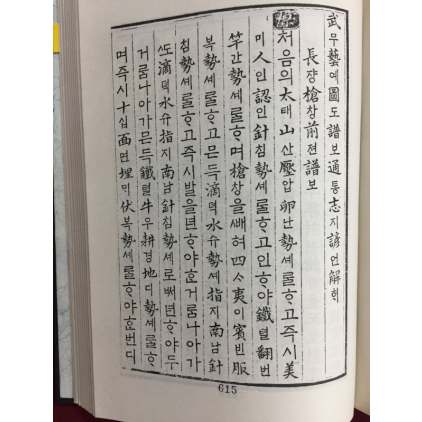 武무藝예圖도譜보通통志지諺언解ᄒᆡ
長쟝槍창前젼譜보
처음의太태山산壓압卵난勢셰ᄅᆞᆯᄒᆞ고즉시美
미人인認인針침勢셰ᄅᆞᆯᄒᆞ고인ᄒᆞ야鐵텰翻번
竿간勢셰ᄅᆞᆯᄒᆞ며槍창을ᄲᅢ혀四ᄉᆞ夷이賓빈服
복勢셰ᄅᆞᆯᄒᆞ고믄득滴뎍水슈勢셰指지南남針
침勢셰ᄅᆞᆯᄒᆞ고즉시발을년ᄒᆞ야거룸나아가
ᄯᅩ滴뎍水슈指지南남針침勢셰로ᄲᅥ년ᄒᆞ야두
거룸나아가믄득鐵텰牛우耕경地디勢셰ᄅᆞᆯᄒᆞ
며즉시十십面면埋ᄆᆡ伏복勢셰ᄅᆞᆯᄒᆞ야ᄒᆞᆫ번디
615